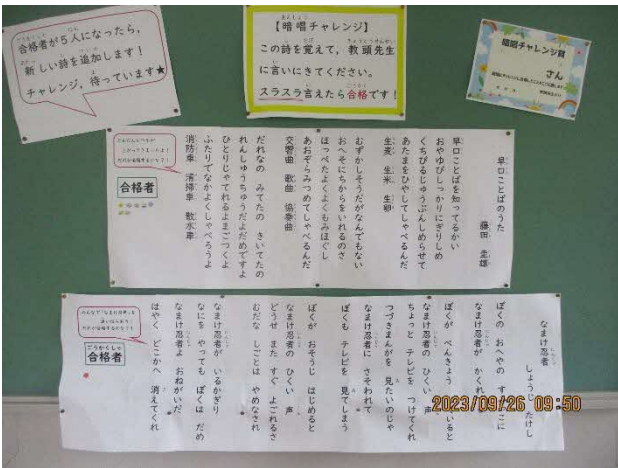 合格者が5人になったら，
新しい詩を追加します！
チャレンジ，待っています★
【暗唱チャレンジ】
この詩を覚えて，教頭先生
に言いにきてください。
スラスラ言えたら合格です！
暗唱チャレンジ賞
さん
早口ことばのうた
藤田 圭雄
早口ことばを知ってるかい
おやゆびしっかりにぎりしめ
くちびるじゅうぶんしめらせて
あたまをひやしてしゃべるんだ
生麦 生米 生卵
むずかしそうだがなんでもない
おへそにちからをいれるのさ
ほっぺたよくよくもみほぐし
あおぞらみつめてしゃべるんだ
交響曲 歌曲 協奏曲
だれなの みてたの きいてたの
れんしゅうちゅうだよだめですよ
ひとりじゃてれるよまごつくよ
ふたりでなかよくしゃべろうよ
消防車 清掃車 散水車
合格者
なまけ忍者
しょうじ たけし
ぼくの おへやの すみ こに
なまけ忍者が かくれ
ぼくが べんきょう いると
なまけ忍者の ひくい 声
ちょっと テレビを つけてくれ
つづきまんがを 見たいのじゃ
なまけ忍者に さそわれて
ぼくも テレビを 見てしまう
ぼくが おそうじ はじめると
なまけ忍者の ひくい 声
どうせ また すぐ よごれるさ
むだな しごとは やめなされ
なまけ忍者が いるかぎり
なにを やっても ぼくは だめ
なまけ忍者よ おねがいだ
はやく どこかへ 消えてくれ
ごうかくしゃ
合格者
2023/09/26 09:50